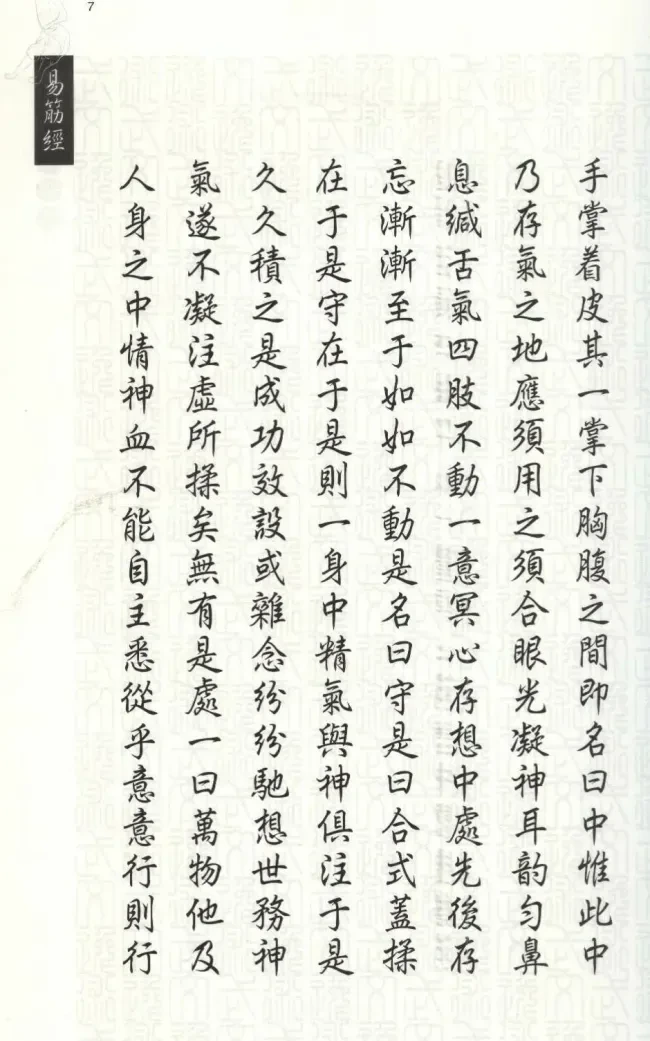 7
易筋經
手掌着皮其一掌下胸腹之間即名曰中惟此中
乃存氣之地應須用之須合眼光凝神耳韵匀鼻
息緘舌氣四肢不動一意冥心存想中處先後存
忘漸漸至于如如不動是名曰守是曰合式蓋揉
在于是守在于是則一身中精氣與神俱注于是
久久積之是成功效設或雜念紛紛馳想世務神
氣遂不凝注虛所揉矣無有是處一曰萬物他及
人身之中情神血不能自主悉從乎意意行則行